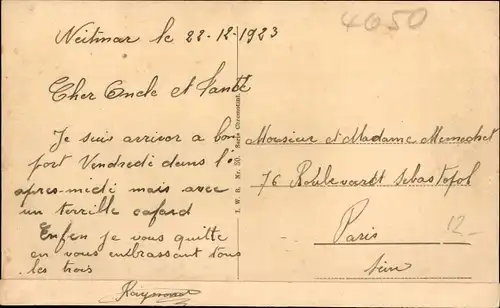 4050
Neitmar le 22-12-1923
Cher Oncle et Tante
Je suis arriver a bon
port Vendredi dans l'
apres-midi mais avec
un terrille cafard
Enfen je vous quitte
en vous embrassant tous
les trois
Raymond
I. W. B. Nr. 30. Serie Chromotint.
Monsieur et Madame Memechet
76 Boulevardt Sebastopol
Paris
Sein
12-